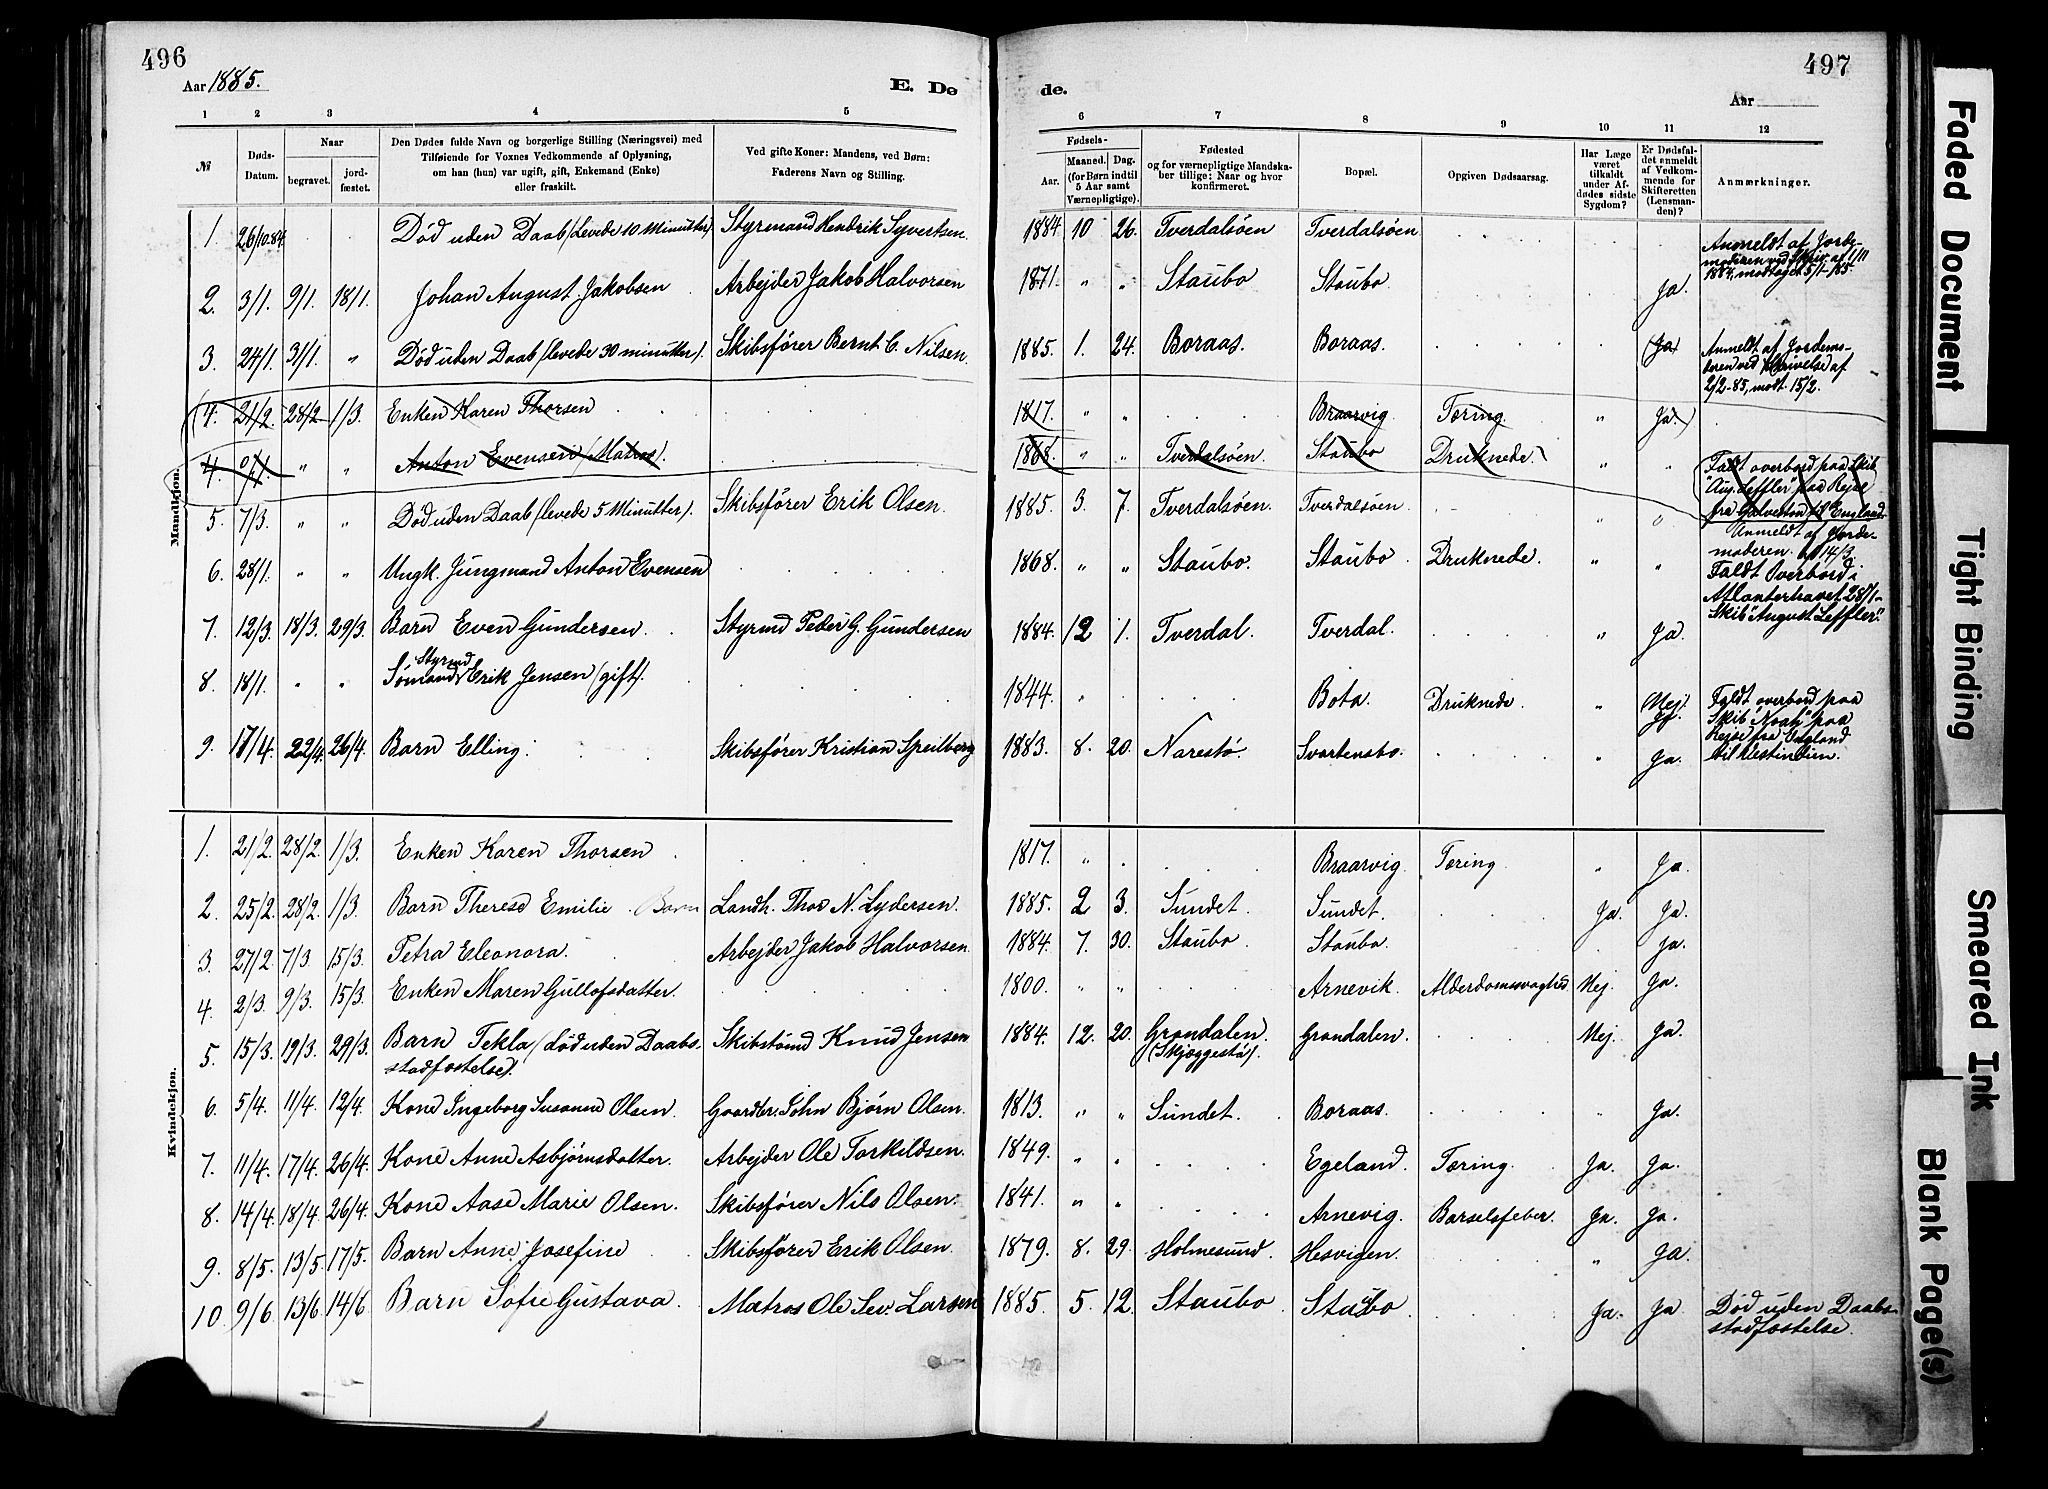 496
497
Aar 1885.
E. De
de.
Aar
1 2 3 4 5 6 7 8 9 10 11 12
№
Døds-Datum.
Naar
begravet.
jord-fæstet.
Den Dødes fulde Navn og borgerlige Stilling (Næringsvei) med
Tilføiende for Voxnes Vedkommende af Oplysning,
om han (hun) var ugift, gift, Enkemand (Enke)
eller fraskilt.
Ved gifte Koner: Mandens, ved Børn:
Faderens Navn og Stilling.
Fødsels-
Aar.
Maaned.
Dag.
(for Børn indtil
5 Aar samt
Værnepligtige).
Fødested
og for værnepligtige Mandska-
ber tillige: Naar og hvor
konfirmeret.
Bopæl.
Opgiven Dødsaarsag.
Har Læge
været
tilkaldt
under Af-
dødes sidste
Sygdom?
Er Dødsfal-
det anmeldt
af Vedkom-
mende for
Skifteretten
(Lensman-
den)?
Anmærkninger.
Mandkjøn.
1. 26/10.84 Død uden Daab (Levede 10 Minutter) Styrmand Hendrik Syvertsen 1884 10 26. Tverdalsöen Tverdalsöen Anmeldt af Jorde-
moderen ved Skriv. af 1/11
1884, modtaget 5/1-85.
2. 3/1. 9/1. 18/1. Johan August Jakobsen Arbejder Jakob Halvorsen 1871. " " Staubo Staubo. Ja.
3. 24/1. 31/1. " Død uden Daab (levede 30 minutter). Skibsfører Bernt C. Nilsen 1885. 1. 24. Boraas. Boraas. (Ja) Anmeldt af Jordemo-
deren ved Skrivelse af
2/2-85, modt. 15/2.
4. 21/2. 28/2 1/3. Enken Karen Thorsen 1817. " " Braarvig Tæring. " Ja.
4. 0/1. " " Anton Evensen (Matros). 1868. " " Tverdalsöen. Staubo Druknede. " " Faldt overbord paa Skib
"Aug. Leffler" paa Rejse
fra Galveston til England
5. 7/3. " " Død uden Daab (levede 5 Minutter). Skibsfører Erik Olsen. 1885. 3. 7. Tverdalsöen. Tverdalsöen " Anmeldt af Jorde-
moderen. 14/3.
6. 28/1. " " Ungk. Jungmand Anton Evensen 1868. " " Staubo. Staubo Druknede. " " Faldt Overbord i
Atlanterhavet 28/1-
Skib "August Leffler".
7. 12/3. 18/3. 29/3. Barn Even Gundersen. Styrmd Peder G. Gundersen 1884. 12 1. Tverdal. Tverdal. " Ja.
Styrmd
8. 18/1. " " Sømand Erik Jensen (gift). 1844. " Bota. Druknede. " (Nej)
Ja. Faldt overbord paa
Skib "Noah" paa
Rejse fra England
til Vestindien.
9. 17/4. 22/4. 26/4. Barn Elling. Skibsfører Kristian Speilberg 1883. 8. 20. Narestö. Svartensbo. " Ja.
Kvindekjøn.
1. 21/2. 28/2. 1/3. Enken Karen Thorsen 1817. " Braarvig. Tæring. " Ja.
2. 25/2. 28/2. 1/3. Barn Therese Emilie. Barn Landh. Thor N. Lydersen. 1885. 2 3. Sundet. Sundet. Ja. Ja.
3. 27/2. 7/3. 15/3. Petra Eleonora. Arbejder Jakob Halvorsen 1884. 7. 30. Staubo. Staubo. Ja.
4. 2/3. 9/3. 15/3. Enken Maren Gullofsdatter. 1800. " " Arnevik. Alderdomssvaghed Nej. Ja.
5. 15/3. 19/3. 29/3. Barn Tekla (død uden Daabs-
stadfæstelse). Skibstømd Knud Jensen 1884. 12. 20. Grandalen.
(Skjæggestö). Grandalen. Nej. Ja.
6. 5/4. 11/4. 12/4. Kone Ingeborg Susanne Olsen. Gaardbr. John Bjørn Olsen. 1813. " " Sundet. Boraas. " Ja.
7. 11/4. 17/4. 26/4. Kone Anne Asbjørnsdatter. Arbejder Ole Torkildsen. 1849. " " Egeland. Tæring. Ja. Ja.
8. 14/4. 18/4. 26/4. Kone Aase Marie Olsen. Skibsfører Nils Olsen. 1841. " " Arnevig. Barselsfeber. Ja. Ja.
9. 8/5. 13/5. 17/5. Barn Anne Josefine Skibsfører Erik Olsen. 1879. 8. 29. Holmesund. Hesvigen. " Ja.
10. 9/6. 13/6. 14/6. Barn Sofie Gustava. Matros Ole Sev. Larsen 1885. 5. 12. Staubo. Staubo Ja. Ja. Død uden Daabs-
stadfæstelse.
Faded Document
Tight Binding
Smeared Ink
Blank Page(s)